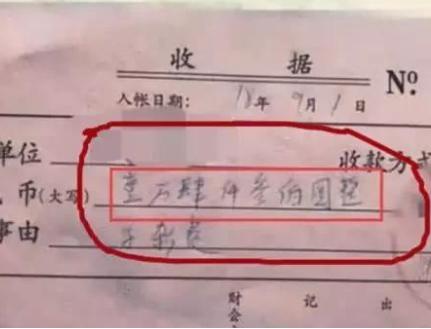 收 据
Nº
入帐日期: 18年9月1日
单位 收款方式
币(大写) 壹万肆仟叁佰圆整
事由
财会 记 出